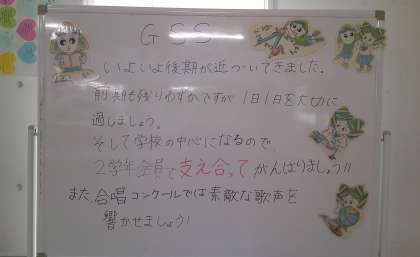 GSS
いよいよ後期が近づいてきました。
前期も残りわずかですが1日1日を大切に
過しましょう。
そして学校の中心になるので、
2学年全員で支え合ってがんばりましょう!!
また、合唱コンクールでは素敵な歌声を
響かせましょう!